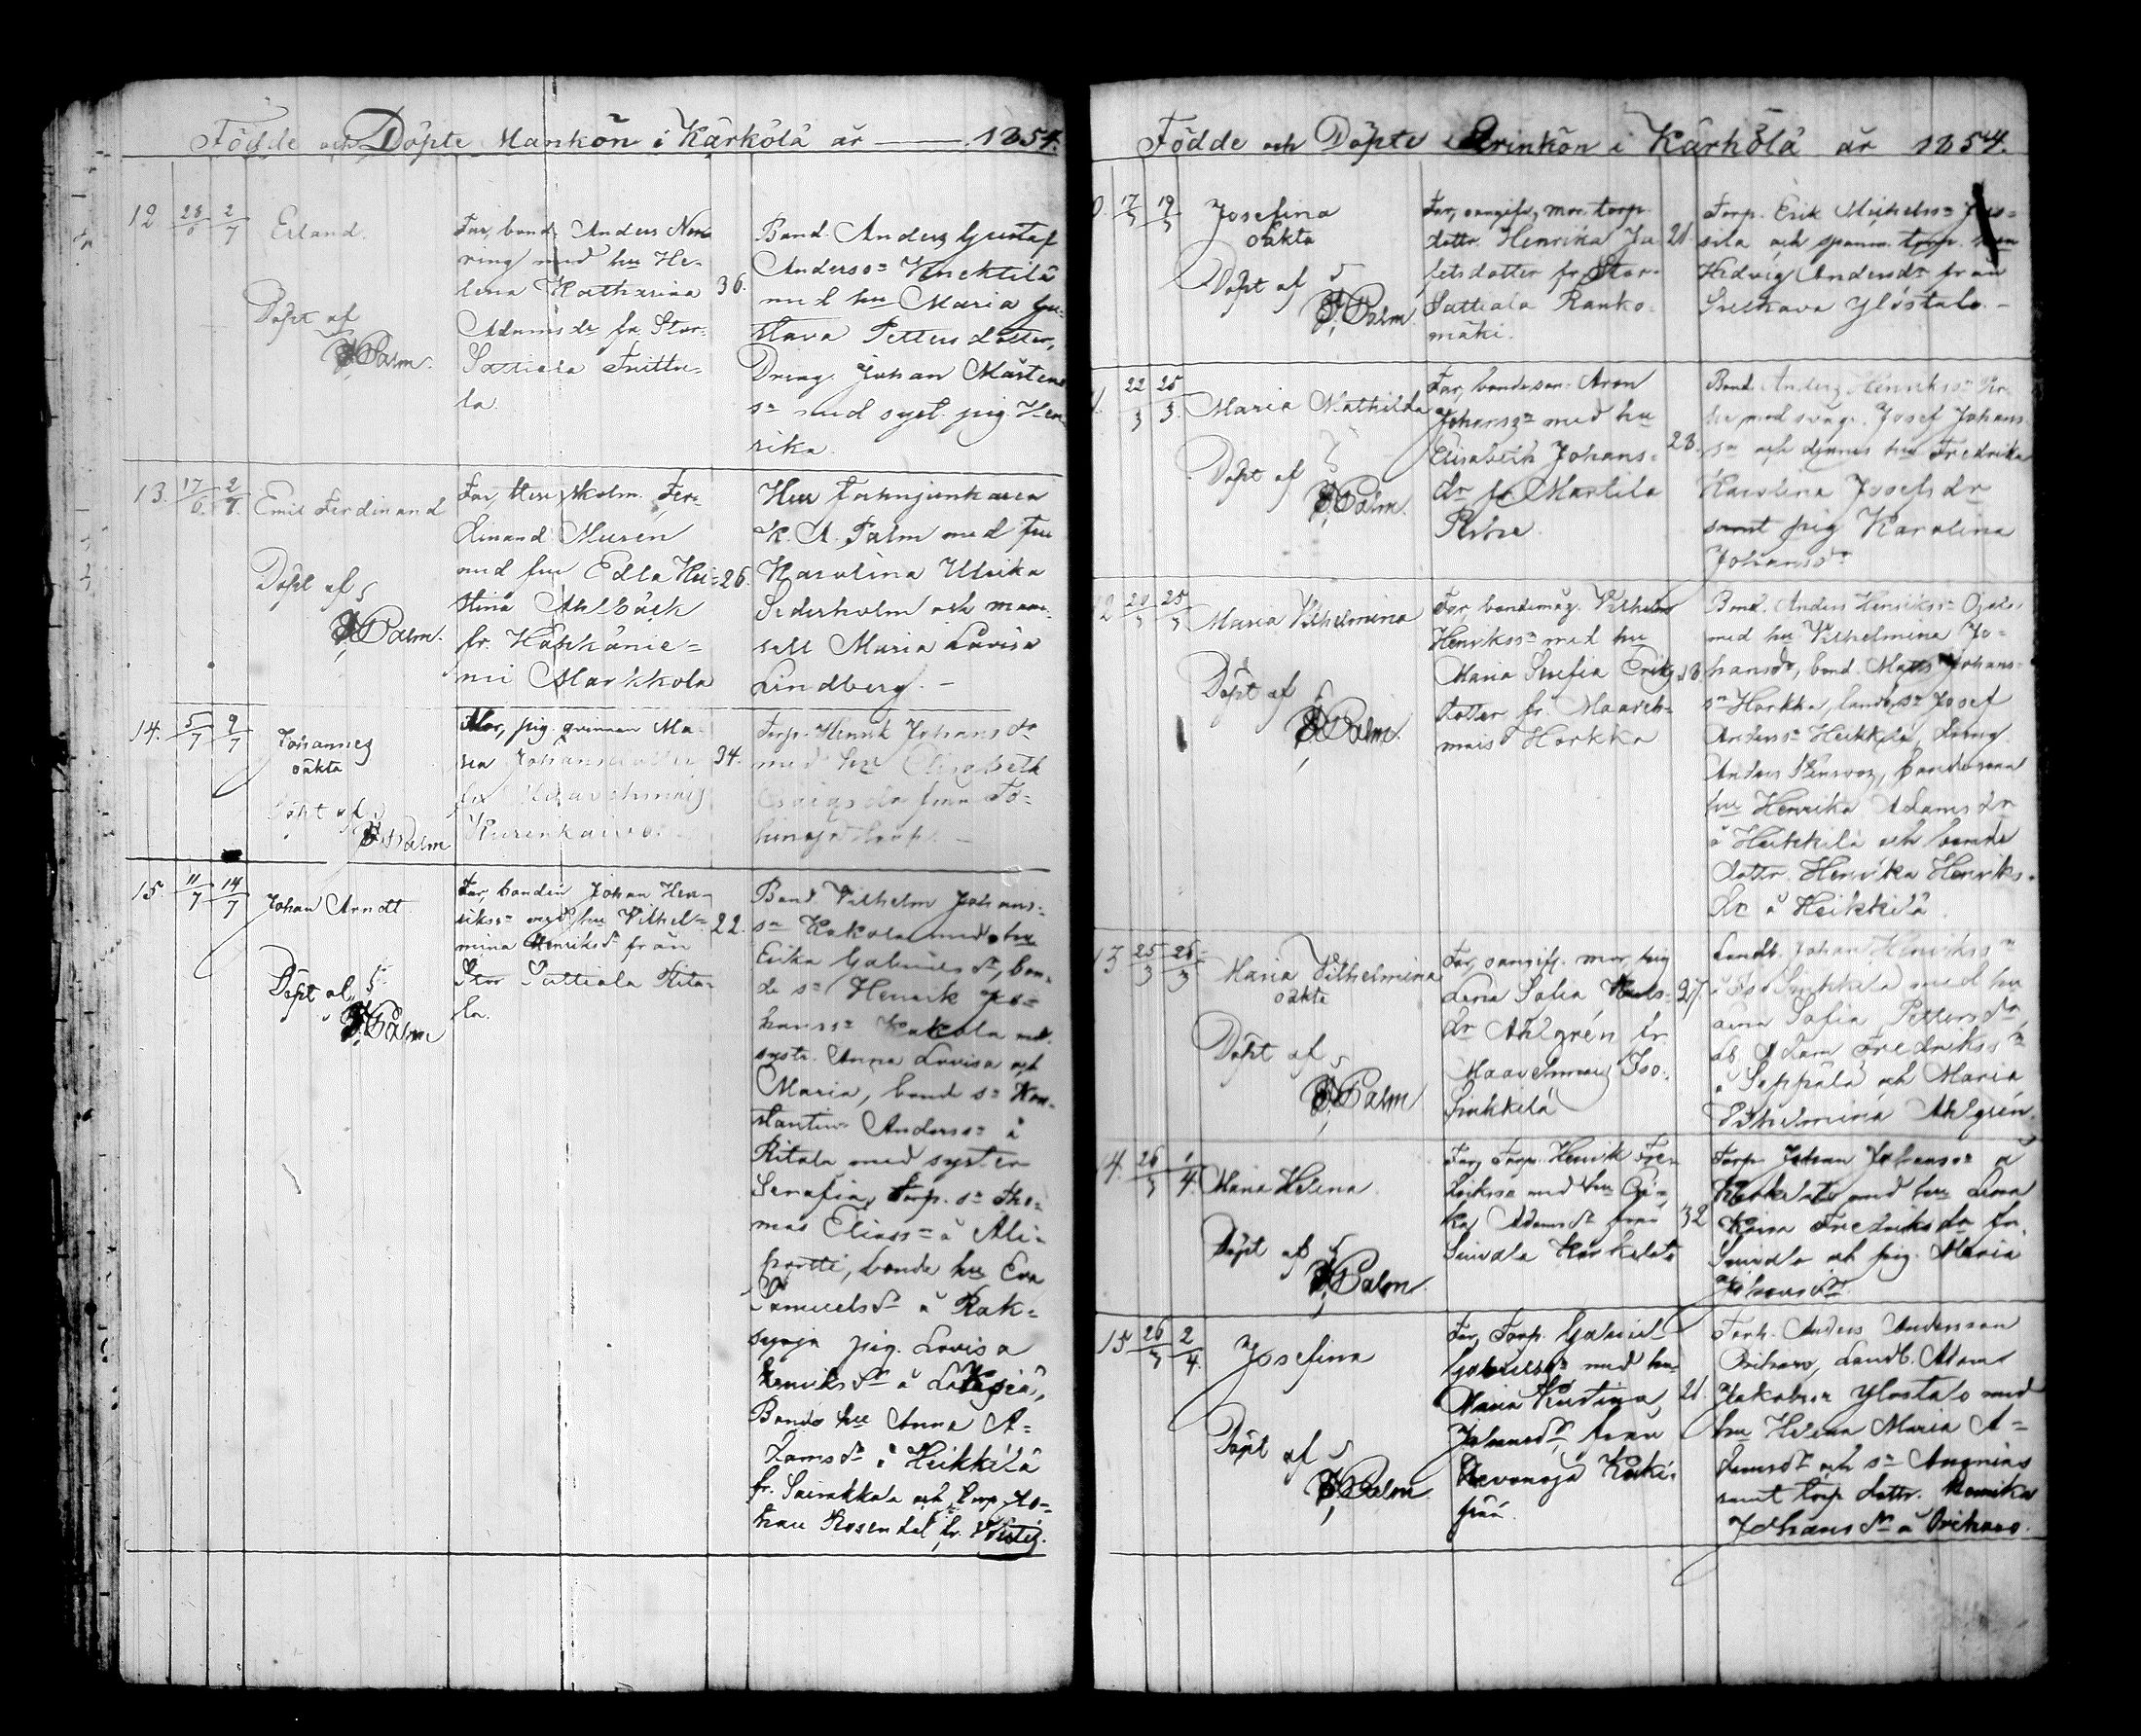 Födde och Döpte Mankön i Kärkölä år — 1854.
12 28/6 2/7
Erland.
Döpt af
Palm.
Far, bond. Anders
ring med hu He-
lena Katharina
Adamsdr fr. Stor-
Sattiala
la.
36.
Bond. Anders Gustaf
Anderss n
med hu Maria Gu-
stava Pettersdotter,
Dreng. Johan Mårtens
sn med syst. pig. Hen
rika.
13. 17/6. 2/7.
Emil Ferdinand
Döpt af
Palm.
Far, Herr skolm. Fer-
dinand Muren
med fru Edla Kri-
stina Ahlbäck
fr. Hähkänie-
mi Markkola
26.
Herr fahnjunkaren
K. A. Palm med fru
Karolina Ulrika
Sederholm och mam-
sell Maria Lovisa
Lindberg. —
14. 5/7 9/7
Johannes
oäkta
Döpt af
Palm
Mor, pig. qvinnan Ma-
ria Johansdotter
fr. Maavehmais
34.
Torp. Henrik Johanss n
med hu Elisabeth
Esaiasdr
15. 11/7 14/7
Johan Arndt.
Döpt af
Palm
Far, bonden Johan Hen-
rikssn med hu Vilhel-
mina Henriksdr från
Stor Sattiala Rita-
la.
22.
Bond. Vilhelm Johans-
sn Kakola med hu
Erika Gabrielsdr, bon-
de sn Henrik Jo-
hanssn Kakola med
systr. Anna Lovisa och
Maria, bonde sn Kon-
stantin Anderssn å
Ritala med syster
Serafia, Torp. sn Tho-
mas Eliassn å Ali-
prtti, bonde hu Eva
Samuelsdr å Rak-
pig. Lovisa
Henriksdr å
Bonde hu Anna A-
damsdr å Heikkilä
fr. Sairakkala och torp. Jo-
han Rosendal fr.
Födde och Döpte Qvinkön i Kärkölä år 1854.
0. 17/3 19/3
Josefina
oäkta
Döpt af
Palm.
Far, oangifv. mor. torp.
dottr. Henrika Ja
fetsdotter fr. Stor-
Sattiala Ranko-
mäki.
21.
Torp. Erik Mickelssn
sila och spanm. torp.
Hedvig Andersdr från
Ylöstalo. —
22/3 25/3.
Maria Mathilda
Döpt af
Palm.
Far, bondeson Aron
Johanssn med hu
Elisabeth Johans-
dr fr. Marttila
23.
Bond. Anders Henrikssn
med svåg. Josef Johans
sn och dennes hu Fredrika
Karolina Josefsdr
samt pig Karolina
Johansdr
12 20/3 25/3
Maria Vilhelmina
Döpt af
Palm.
Far, bondemåg. Vilhelm
Henrikssn med hu
Maria Serefia Eriks
dotter fr. Maaveh-
mais Horkka
Bond. Anders Henrikssn
med hu Vilhelmina Jo-
hansdr, bond. Matts Johans-
sn Horkka, landb. sn Josef
Anderssn Heikkilä, dreng.
Anders Stensvoz, bondesona
hu Henrika Adamsdr
å Heikkilä och bonde
dottr. Henrika Henriks-
dr å Heikkilä
13 25/3 26/3
Maria Vilhelmina
oäkta
Döpt af
Palm
Far, oangifv. mor, pig
Lena Sofia
dr Ahlgrén fr
Maavehmais Iso-
Sinkkilä
27.
Landb. Johan Henrikssn
å Iso Sinkkilä med hu
Sofia Pettersdr,
Lb. Adam Fredrikssn
å Seppälä och Maria
Vilhelmina Ahlgrén.
14. 26/3 1/4.
Maria Helena
Döpt af
Palm.
Far, Torp. Henrik Fre-
drikssn med hu
ka Adamsdr från
32
Torp. Johan Johanssn å
med hu Lena
Kaisa Fredriksdr fr.
och pig. Maria
Johansdr
15 26/3 2/4.
Josefina
Döpt af
Palm
Far, Torp. Gabriel
Gabrielssn med hu
Maria Kristina
Johansdr från
21.
Torp. Anders Andersson
Orihavo, Landb. Adam
Jakobssn Ylöstalo med
hu Helena Maria A-
damsdr och sn Ananias
samt torp dottr. Henrika
Johansdr å Orihavo.